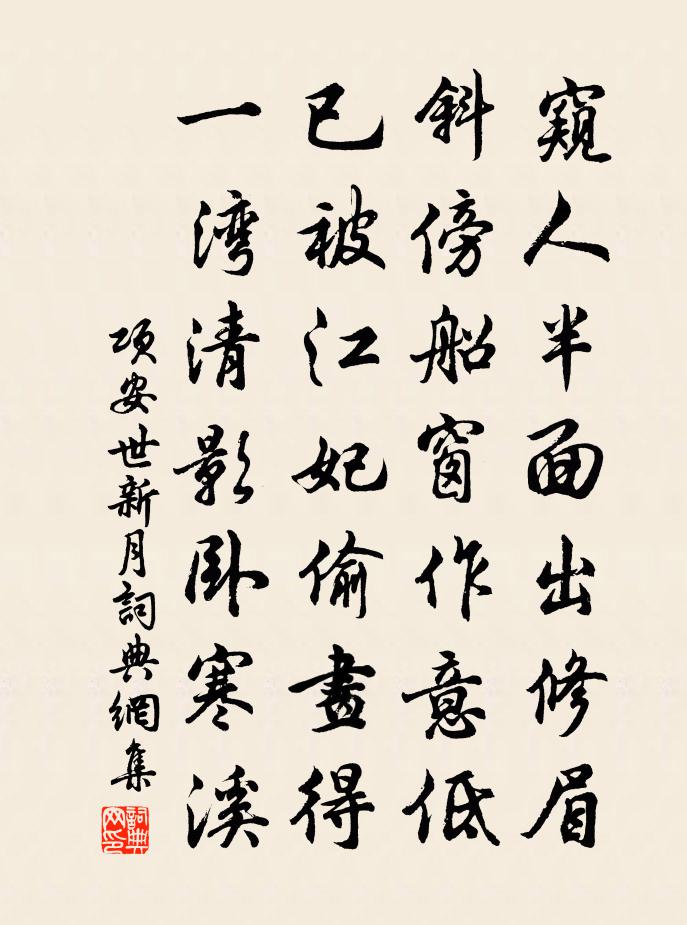 窺人半面出修眉
斜傍船窗作意低
已被江妃偷畫得
一湾清影卧寒溪
项安世新月詞典網集
詞典网印